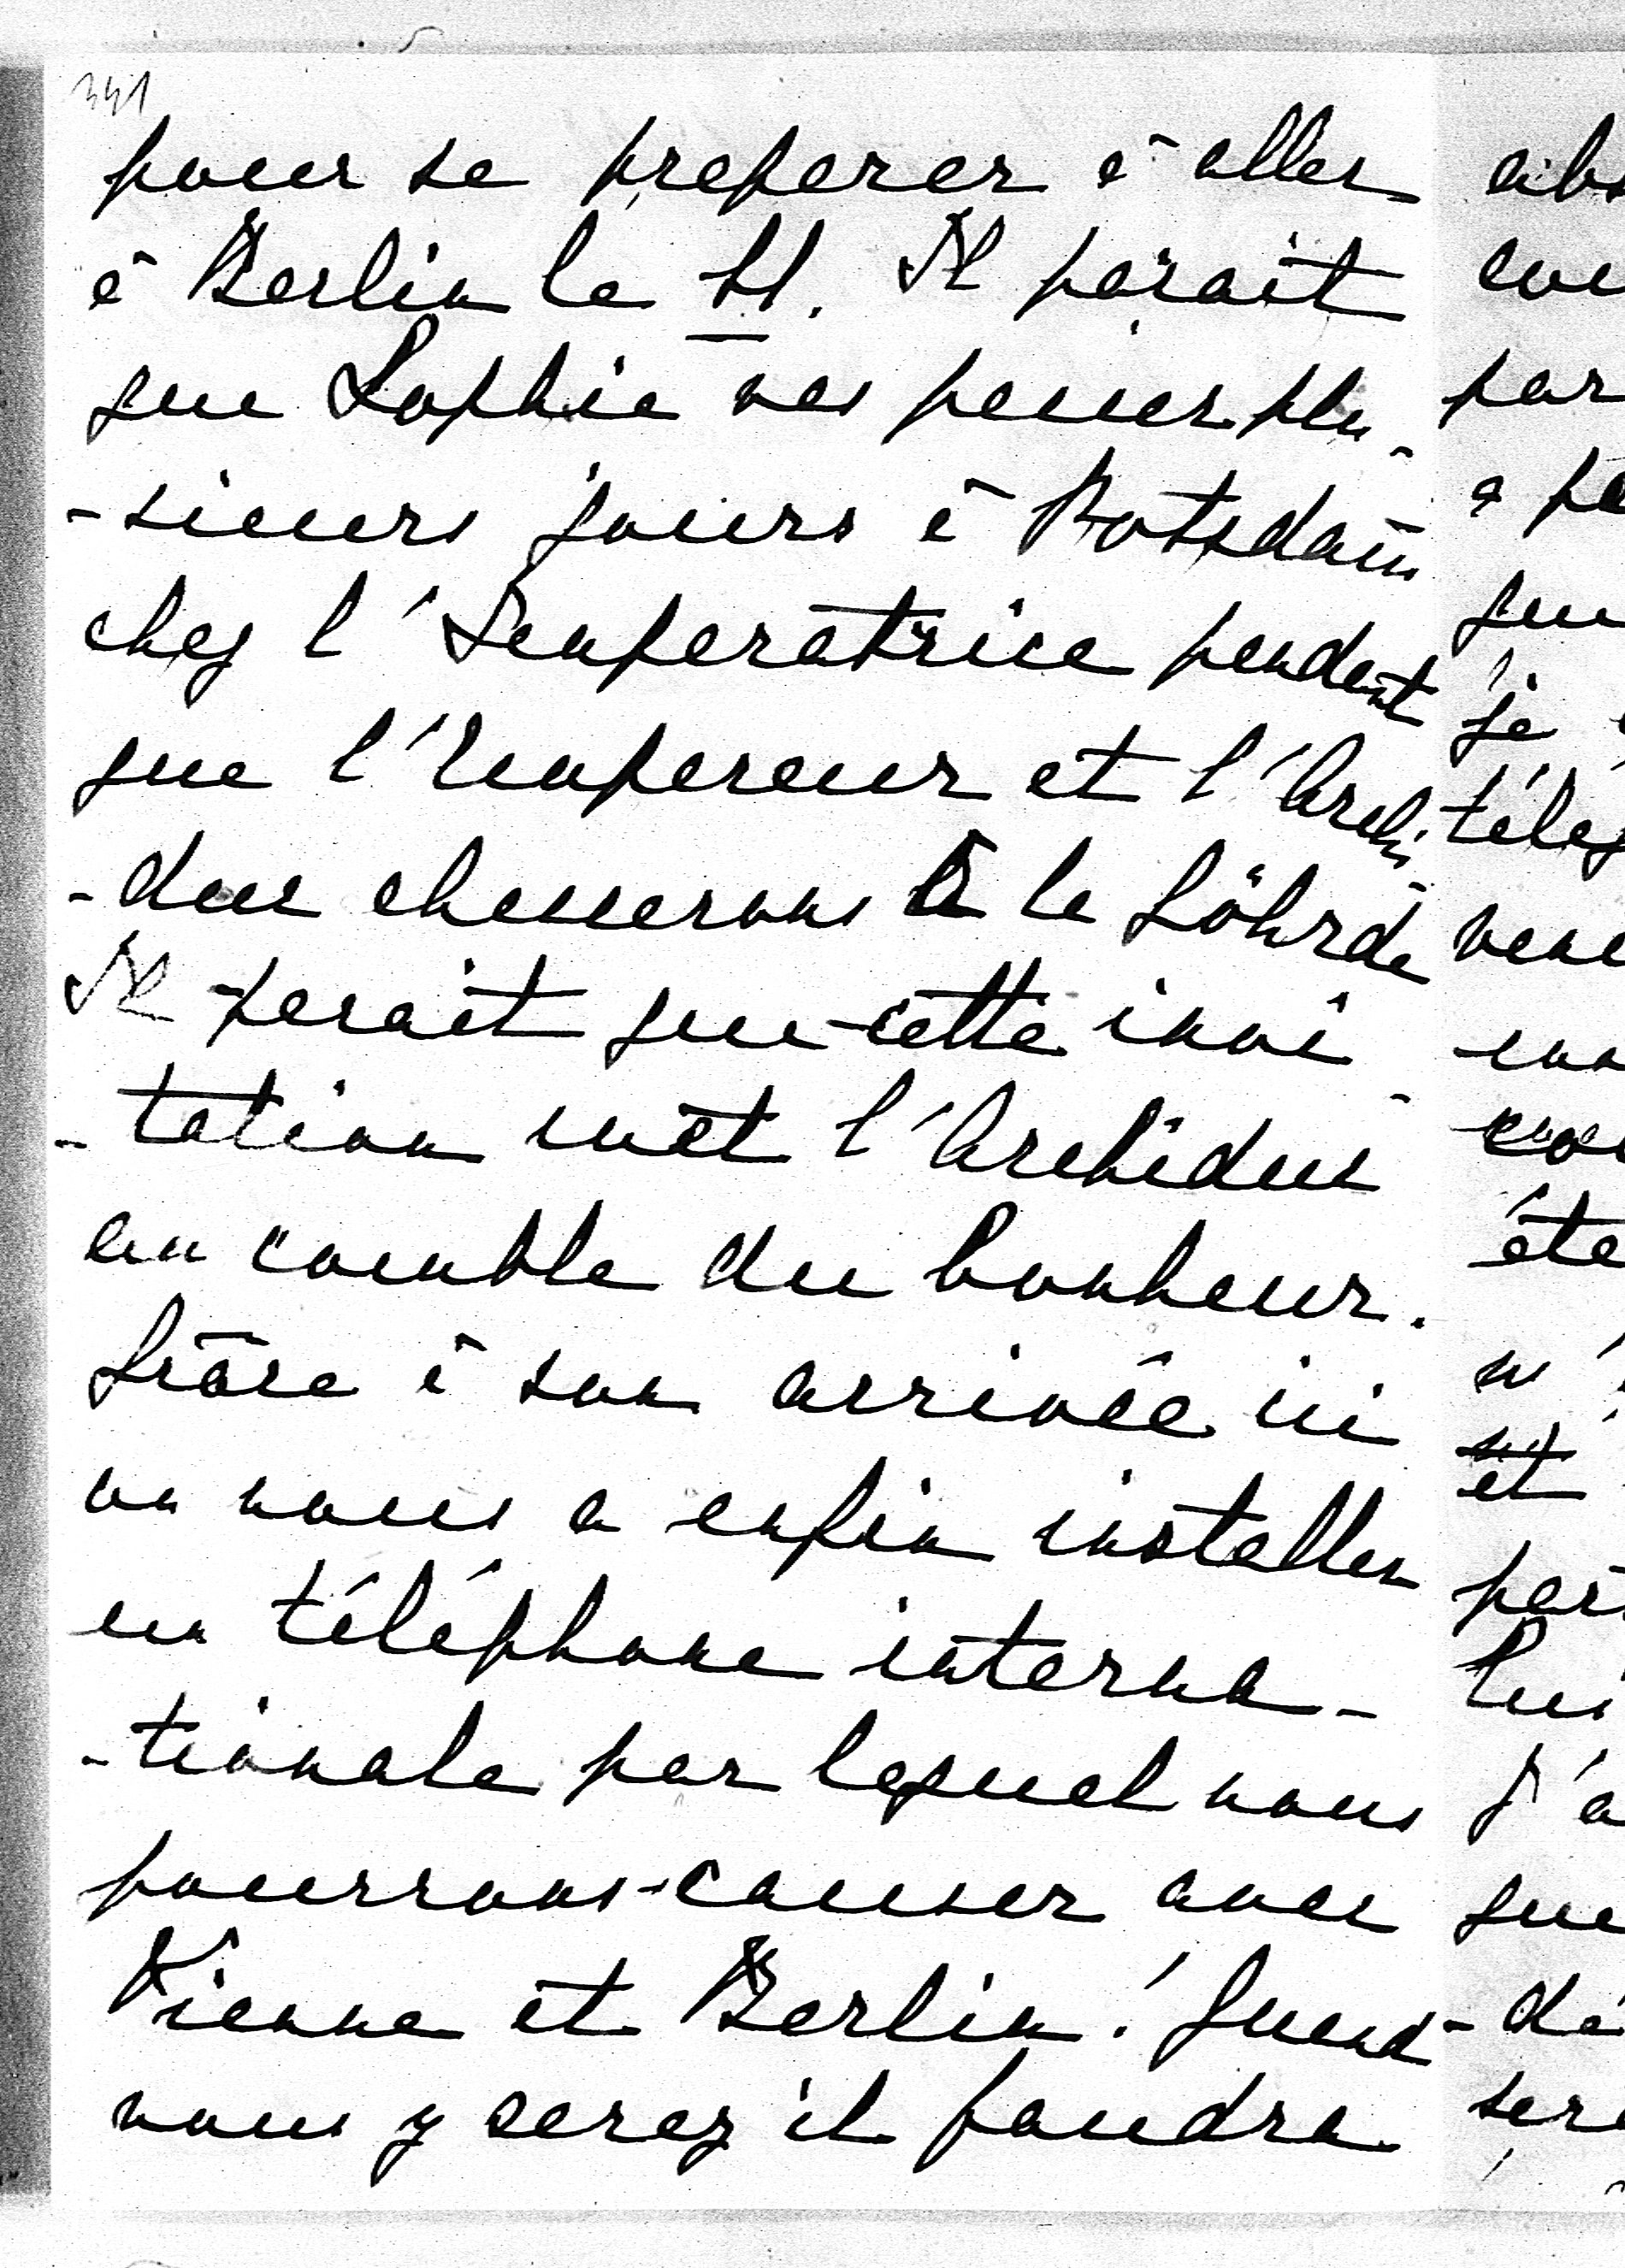 341
pour se preparer à aller
à Berlin le 11. Il parait
que Sophie va passer plu-
-sieurs jours à Potsdam
chez l'Imperatrice pendant
que l'Empereur et l'Archi-
-duc chasserons à la Göhrde
Il parait que cette invi-
-tation met l'Archiduc
au comble du bonheur.
Grâce à son arrivée ici
on nous a enfin installer
un téléphone interna-
-tionale par lequel nous
pourrons causer avec
Vienne et Berlin! Quand
vous y serez il faudra